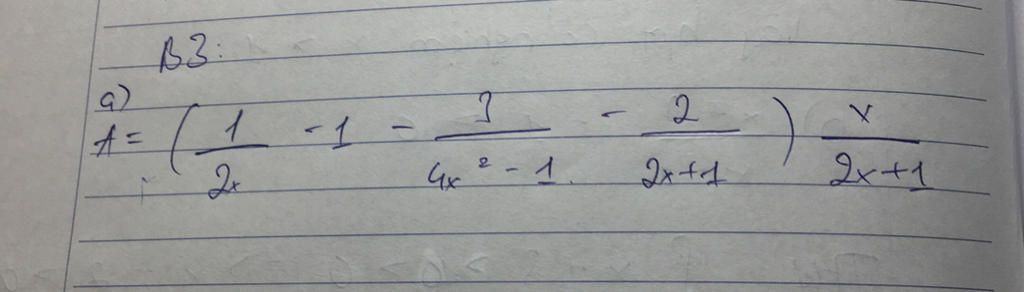 B3:
a)
A = ( 1/2x - 1 - 3/4x² - 1 - 2/2x+1 ) x/2x+1